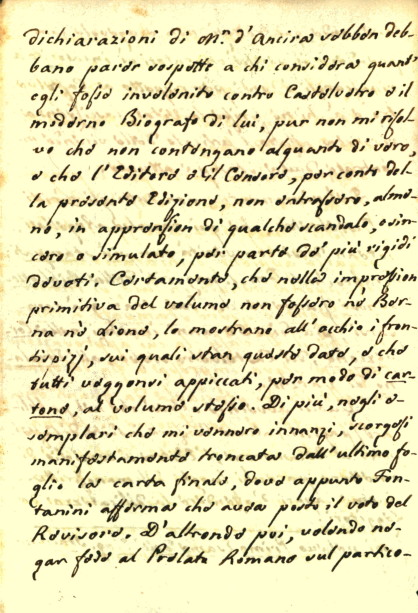 dichiarazioni di M.r d'Ancira sebben deb-
bano parer sospette a chi considera quant'
egli fosse invelenito contro Castelvetro e il
moderno Biografo di lui, pur non mi risol-
vo che non contengano alquanto di vero,
e che l'Editore e il Censore, per conto del-
la presente Edizione, non entrassero, alme-
no, in apprension di qualche scandalo, o sin-
cero o simulato, per parte de' più rigidi
devoti. Certamente, che nella impression
primitiva del volume non fossero nè Ber-
na nè Lione, lo mostrano all'occhio i fron-
tispizj, sui quali stan queste date, e che
tutti veggonsi appiccati, per modo di car-
tone, al volume stesso. Di più, negli e-
semplari che mi vennero innanzi, scorgesi
manifestamente troncata dall'ultimo fo-
glio la carta finale, dove appunto Fon-
tanini afferma che avea posto il voto del
Revisore. D'altronde poi, volendo ne-
gar fede al Prelato Romano sul partico-